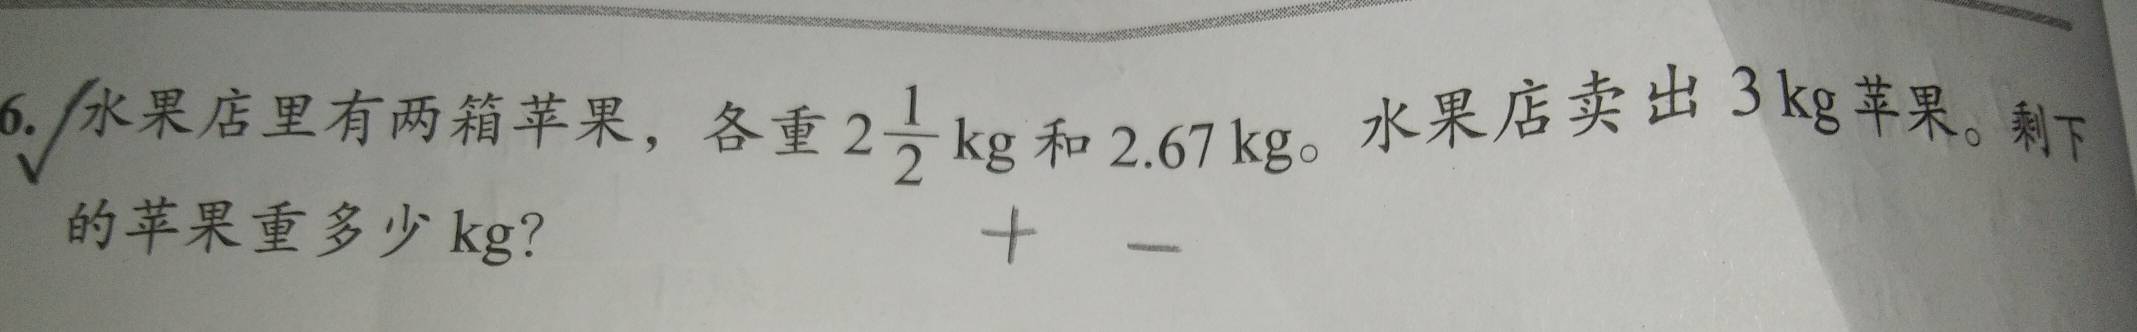 6. 水果店里有两箱苹果，各重 2 1/2 kg 和 2.67 kg。水果店卖出 3 kg 苹果。剩下
的苹果重多少 kg?
+ −